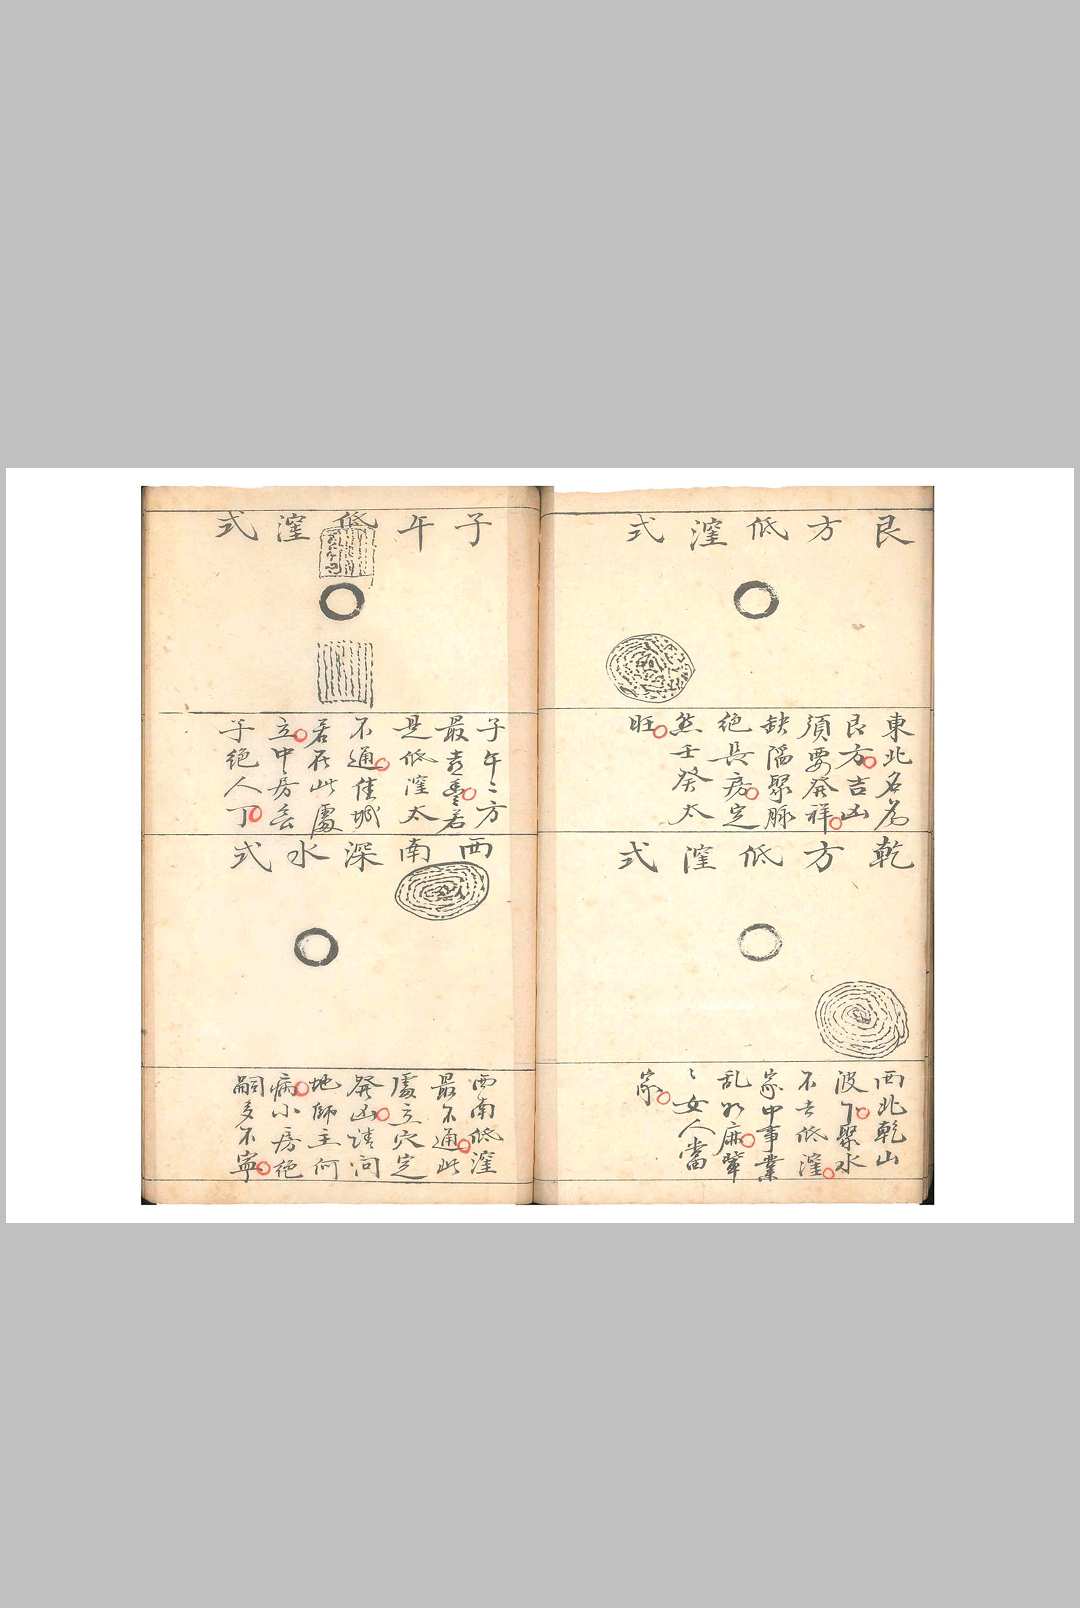 艮方低漥式
東北名為
艮方吉凶
須要發祥
缺陷聚脈
絕長房定
然壬癸太
旺
乾方低漥式
西北乾山
波下聚水
不吉低漥
家中事業
乱如麻輩
〻女人當
家
子午低漥式
子午二方
最喜豊若
是低漥太
不通佳城
若在此處
立中房
子絕人丁
西南深水式
西南低漥
最不通此
處立穴定
發凶請问
地師主何
病小房绝
嗣多不寧